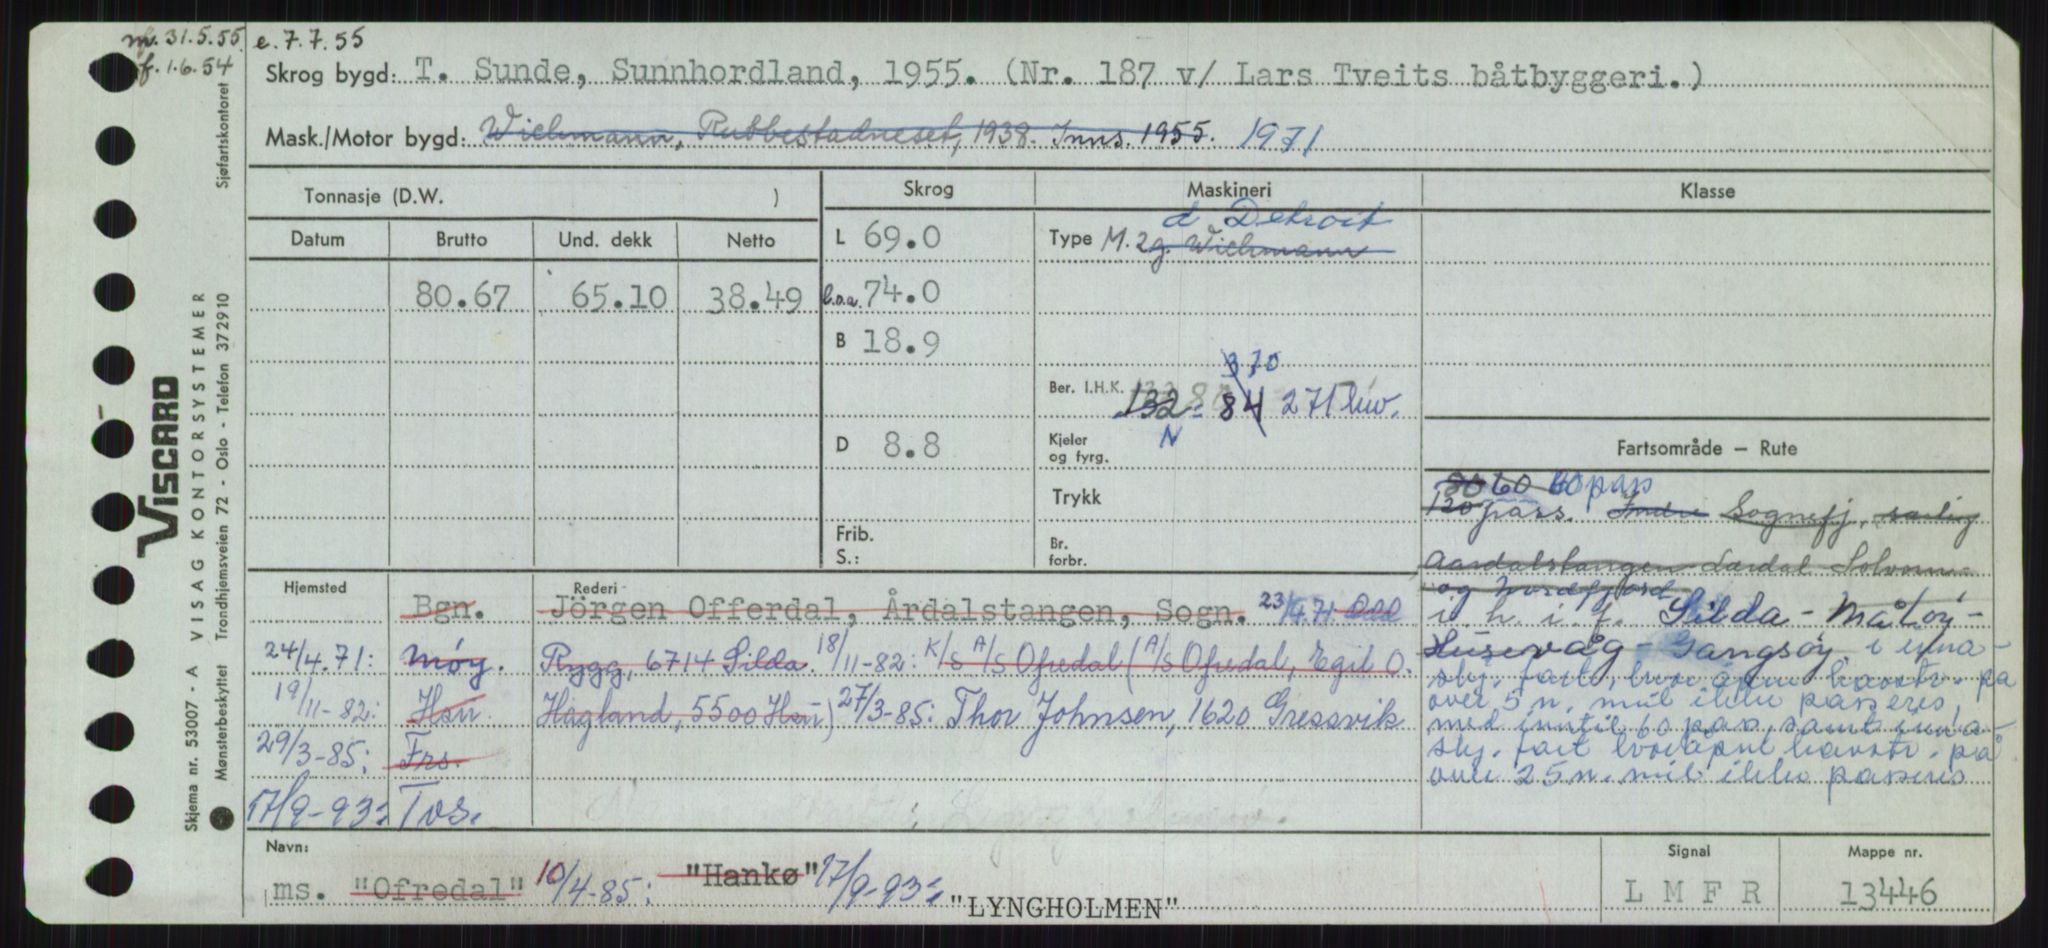 nf. 31.5.55. e. 7.7.55
f. 1.6.54
Skrog bygd: T. Sunde, Sunnhordland, 1955. (Nr. 187 v/ Lars Tveits båtbyggeri.)
Mask./Motor bygd: Wichmann, Rubbestadneset, 1938. Inns. 1955. 1971
Sjøfartskontoret
Mønsterbeskyttet Trondhjemsveien 72 - Oslo - Telefon 372910
Skjema nr. 53007 - A VISAG KONTORSYSTEMER
VISCARD
Tonnasje (D.W. )
Skrog
Maskineri
Klasse
Datum Brutto Und. dekk Netto
80.67 65.10 38.49
L 69.0
b.o.a. 74.0
B 18.9
D 8.8
Frib.
S.:
d Detroit
Type M. 2g. Wichmann
370
Ber. I.H.K. 132 80 84 271 hw.
N
Kjeler
og fyrg.
Trykk
Br.
forbr.
Fartsområde – Rute
80 60 60 pas
120 pass. Indre Sognefj, særlig
Aardalstangen Lærdal Solvorn
og Nordfjord
i. h. i. f. Silda - Måløy -
Husevåg - Gangsøy, i inna-
skj. fart, hvor åpne havstr. på
over 5 n. mil ikke passeres,
med inntil 60 pas, samt inna-
skj. fart hvor åpne havstr. på
over 25 n. mil ikke passeres
Hjemsted
Rederi
Bgn. Jörgen Offerdal, Årdalstangen, Sogn. 23/4.71. Odd
24/4.71: Møy. Rygg, 6714 Silda. 18/11-82: K/S A/S Ofredal (A/S Ofredal, Egil O.
19/11-82: Hsn. Hagland, 5500 Hsn) 27/3-85: Thor Johnsen, 1620 Gressvik
29/3-85: Frs.
17/9-93: Tvs.
Navn:
ms. "Ofredal" 10/4-85: "Hankø" 17/9-93: "LYNGHOLMEN"
Signal
L M F R
Mappe nr.
13446